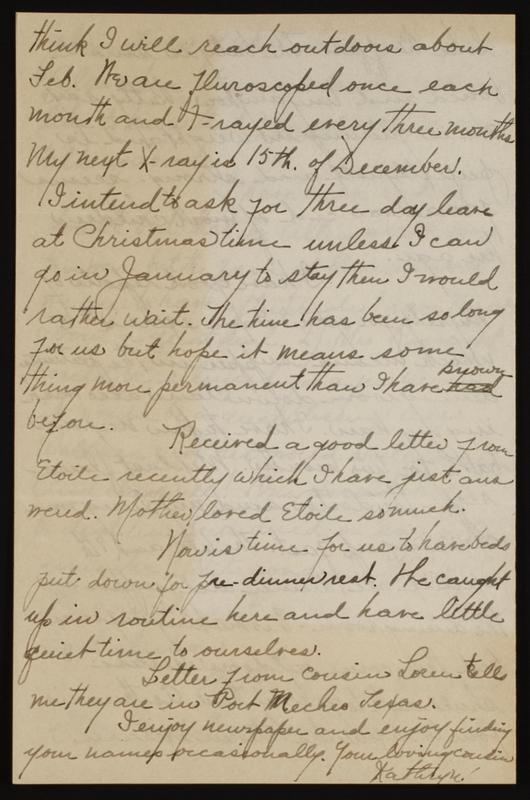 think I will reach outdoors about
Feb. We are fluroscoped once each
month and X-rayed every three months
My next X-ray is 15th. of December.
I intend to ask for three day leave
at Christmas time unless I can
go in January to stay then I would
rather wait. The time has been so long
for us but hope it means some
thing more permanent than I have had known
before.
Received a good letter from
Etoile recently which I have just ans
wered. Mother loved Etoile so much.
Now is time for us to have beds
put down for pre-dinner rest. We caught
up in routine here and have little
quiet time to ourselves.
Letter from cousin Loren tells
me they are in Port Meches Texas.
I enjoy newspaper and enjoy finding
your names occasionally. Your loving cousin
Kathryn.